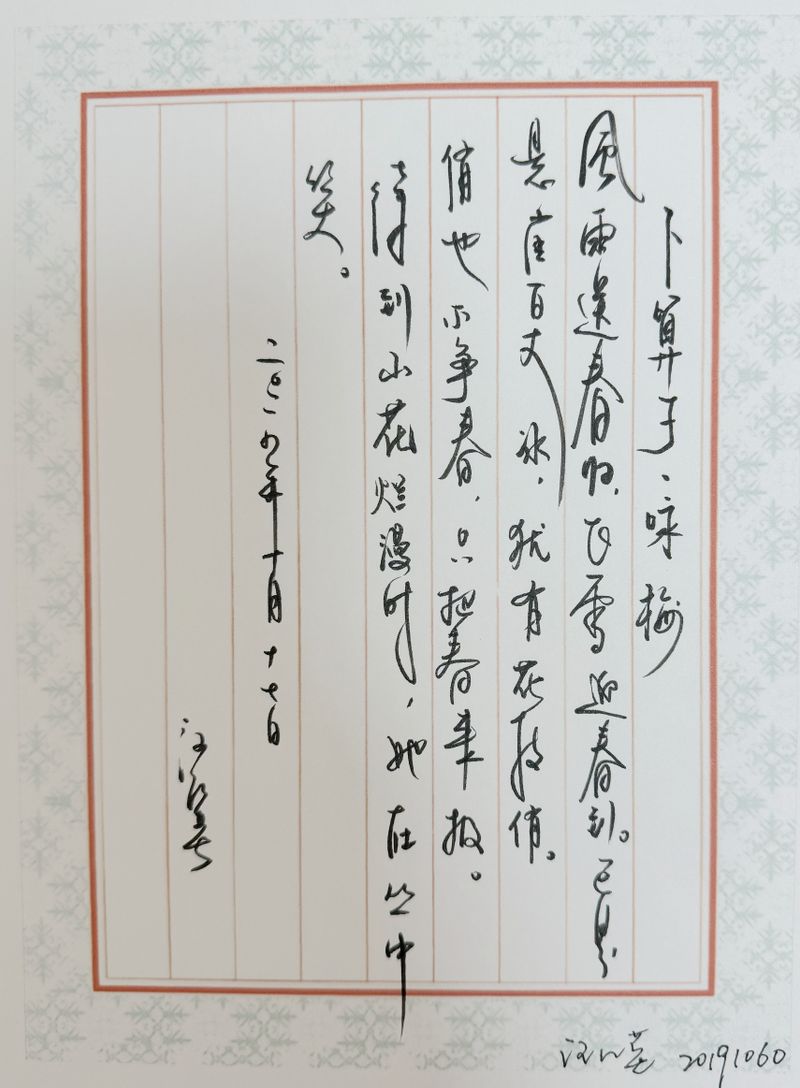 卜算子、咏梅
風雨送春归，飞雪迎春到。已是
悬崖百丈冰，犹有花枝俏。
俏也不争春，只把春来报。
待到山花烂漫时，她在丛中
笑。
二〇一九年十月十七日
20191060